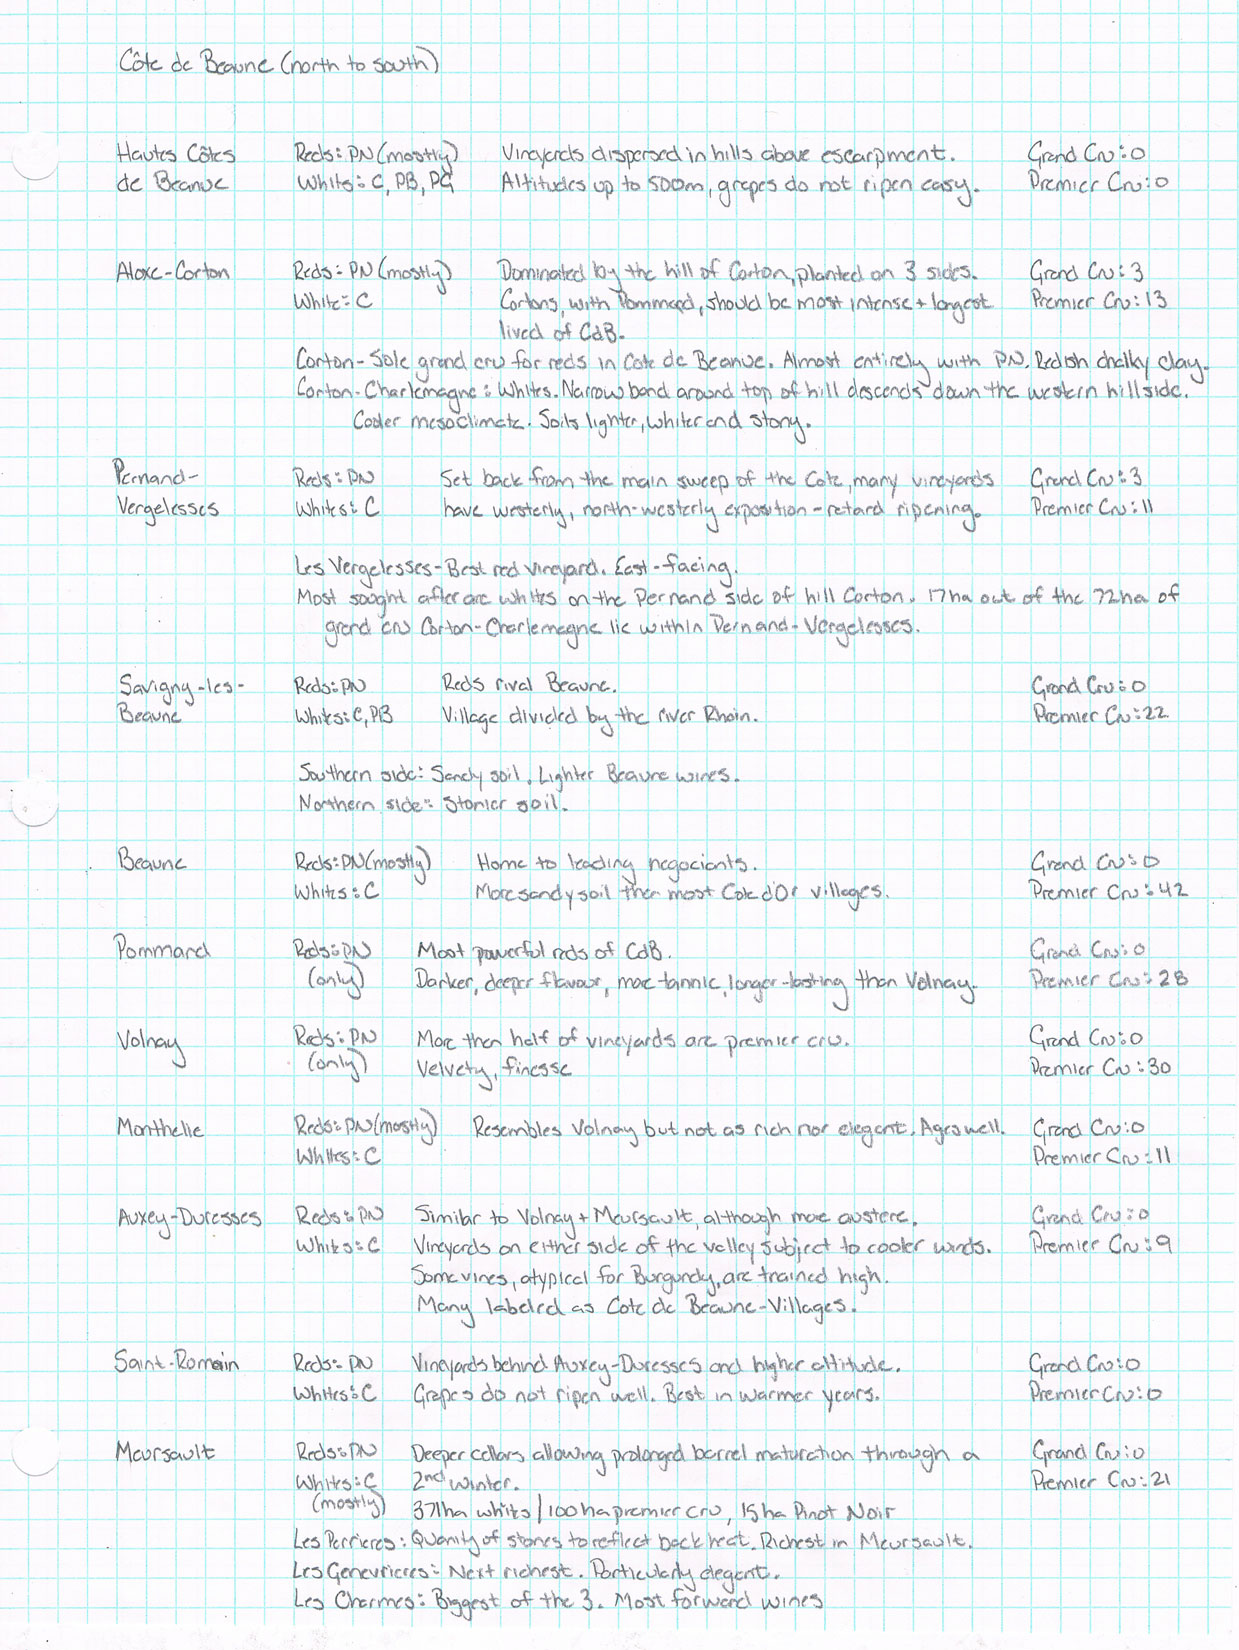 Côte de Beaune (north to south)
Hautes Côtes Reds: PN (mostly) Vineyards dispersed in hills above escarpment. Grand Cru: 0
de Beaune Whites: C, PB, PG Altitudes up to 500m, grapes do not ripen easy. Premier Cru: 0
Aloxe-Corton Reds: PN (mostly) Dominated by the hill of Corton, planted on 3 sides. Grand Cru: 3
White: C Cortons, with Pommard, should be most intense + longest Premier Cru: 13
lived of CdB.
Corton - Sole grand cru for reds in Cote de Beaune. Almost entirely with PN. Redish chalky clay.
Corton-Charlemagne: Whites. Narrow band around top of hill descends down the western hillside.
Cooler mesoclimate. Soils lighter, whiter and stony.
Pernand- Reds: PN Set back from the main sweep of the Cote, many vineyards Grand Cru: 3
Vergelesses Whites: C have westerly, north-westerly exposition - retard ripening. Premier Cru: 11
Les Vergelesses - Best red vineyard. East-facing.
Most sought after are whites on the Pernand side of hill Corton. 17ha out of the 72ha of
grand cru Corton-Charlemagne lie within Pernand-Vergelesses.
Savigny-les- Reds: PN Reds rival Beaune. Grand Cru: 0
Beaune Whites: C, PB Village divided by the river Rhoin. Premier Cru: 22
Southern side: Sandy soil. Lighter Beaune wines.
Northern side: Stonier soil.
Beaune Reds: PN (mostly) Home to leading negociants. Grand Cru: 0
Whites: C More sandy soil then most Cote d'Or villages. Premier Cru: 42
Pommard Reds: PN Most powerful reds of CdB. Grand Cru: 0
(only) Darker, deeper flavour, more tannic, longer-lasting than Volnay. Premier Cru: 28
Volnay Reds: PN More then half of vineyards are premier cru. Grand Cru: 0
(only) Velvety, finesse Premier Cru: 30
Monthelie Reds: PN (mostly) Resembles Volnay but not as rich nor elegant. Ages well. Grand Cru: 0
Whites: C Premier Cru: 11
Auxey-Duresses Reds: PN Similar to Volnay + Meursault, although more austere. Grand Cru: 0
Whites: C Vineyards on either side of the valley subject to cooler winds. Premier Cru: 9
Some vines, atypical for Burgundy, are trained high.
Many labeled as Cote de Beaune-Villages.
Saint-Romain Reds: PN Vineyards behind Auxey-Duresses and higher altitude. Grand Cru: 0
Whites: C Grapes do not ripen well. Best in warmer years. Premier Cru: 0
Meursault Reds: PN Deeper cellars allowing prolonged barrel maturation through a Grand Cru: 0
Whites: C 2nd winter. Premier Cru: 21
(mostly) 371ha whites / 100 ha premier cru, 15 ha Pinot Noir
Les Perrieres: Quanity of stones to reflect back heat. Richest in Meursault.
Les Genevrieres: Next richest. Particularly elegant.
Les Charmes: Biggest of the 3. Most forward wines